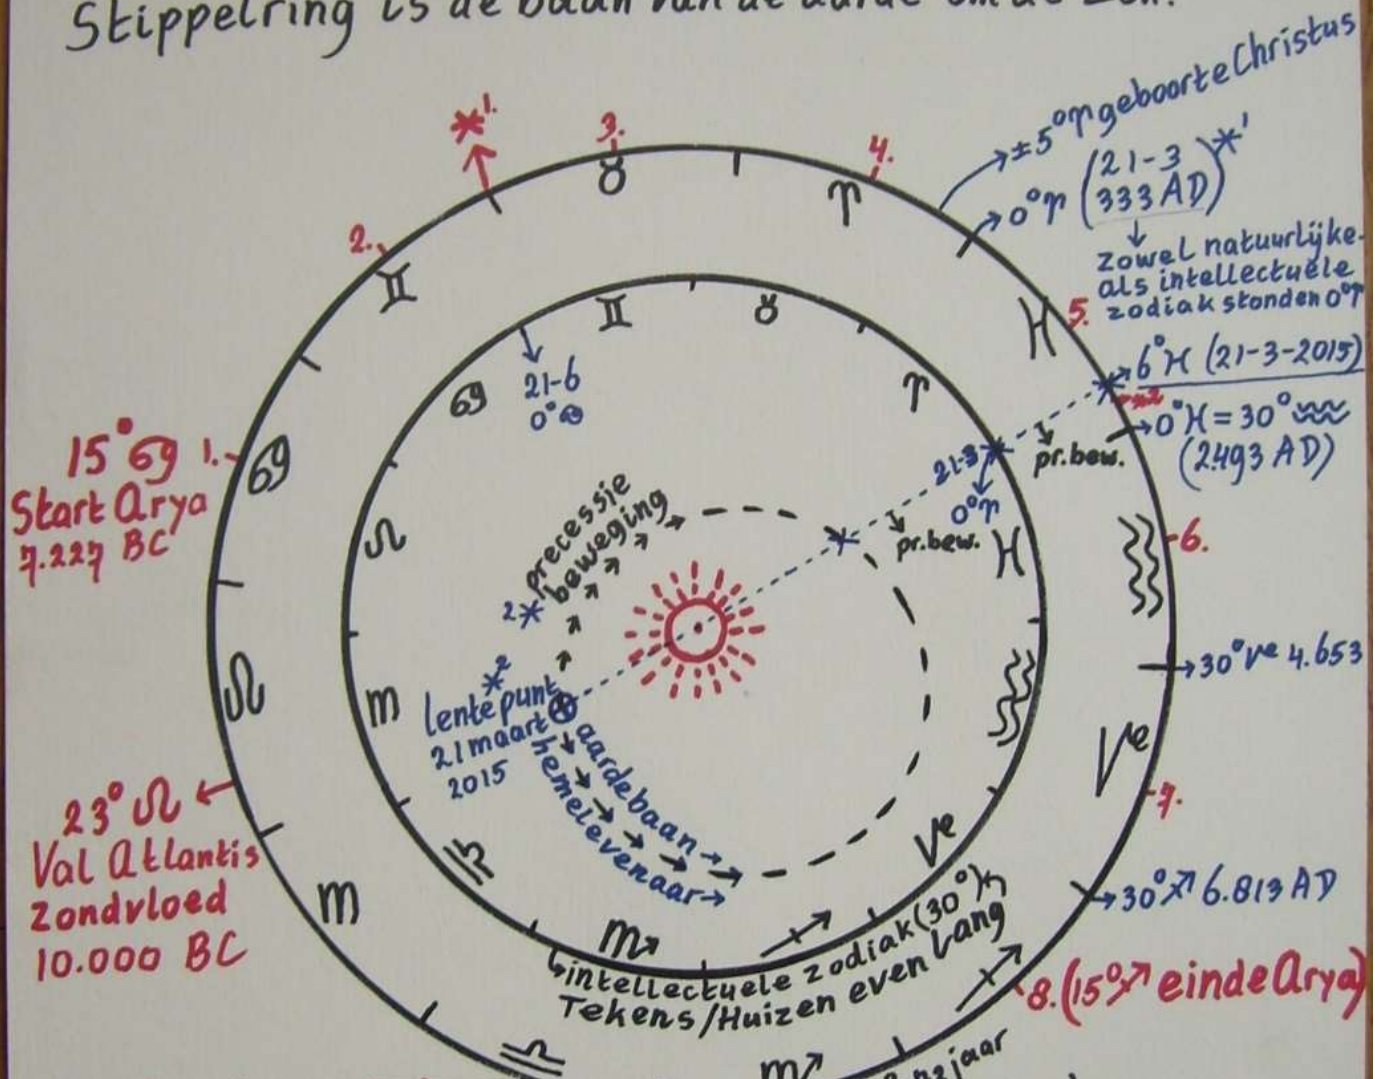 Stippelring is de baan van de aarde om de zon.
*1.
3.
♉
4.
♈
±5°♈ geboorte Christus
0°♈ (21-3
333 AD)*1
↓
zowel natuurlijke-
als intellectuele
zodiak stonden 0°♈
2.
♊
♊
♉
♓
5.
6°♓ (21-3-2015)
*2
0°♓ = 30°♒
(2493 AD)
pr.bew.
21-6
0°♋
♋
♈
21-3
0°♈
15°♋ 1.
Start Arya
7.227 BC
♋
♌
precessie
beweging
2*
pr.bew.
♓
♒
6.
30°Ve 4.653
♌
♍
*2
lentepunt
21 maart
2015
aardebaan
hemelevenaar
♒
Ve
7.
23°♌
Val Atlantis
Zondvloed
10.000 BC
♍
♎
Ve
30°♐ 6.813 AD
♏
♐
intellectuele zodiak (30°)
Tekens/Huizen even lang
♐
8. (15°♐ einde Arya)
♎
♏
jaar